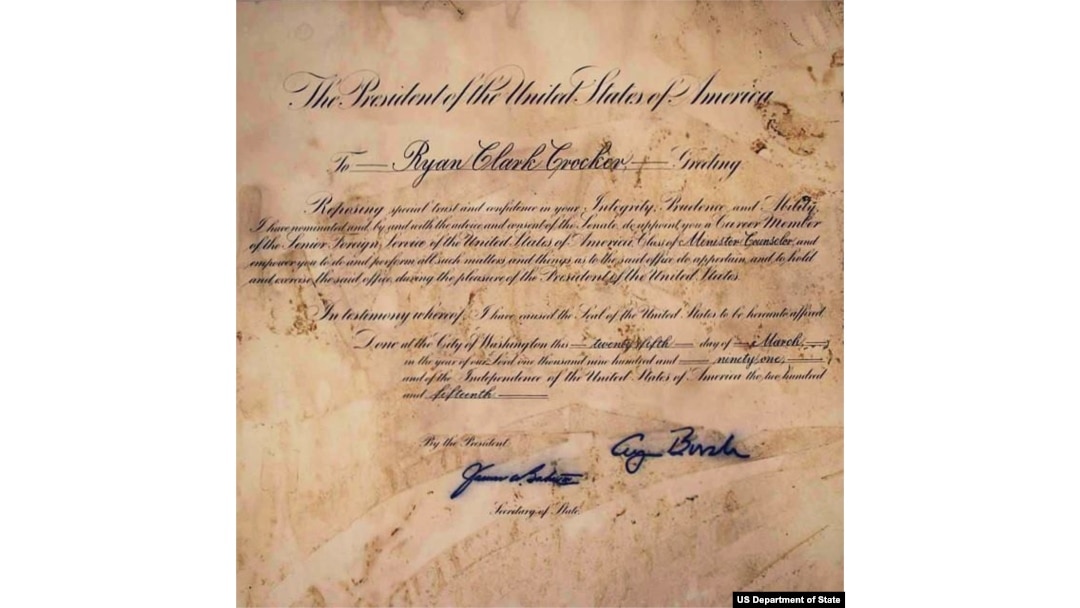 The President of the United States of America
To Ryan Clark Crocker Greeting
Reposing special trust and confidence in your Integrity, Prudence, and Ability,
I have nominated and, by and with the advice and consent of the Senate, do appoint you a Career Member
of the Senior Foreign Service of the United States of America, Class of Minister-Counselor, and
empower you to do and perform all such matters and things as to the said office do appertain, and to hold
and exercise the said office during the pleasure of the President of the United States.
In testimony whereof, I have caused the Seal of the United States to be hereunto affixed
Done at the City of Washington this twenty-fifth day of March
in the year of our Lord one thousand nine hundred and ninety-one,
and of the Independence of the United States of America the two hundred
and fifteenth
By the President
Secretary of State.
US Department of State